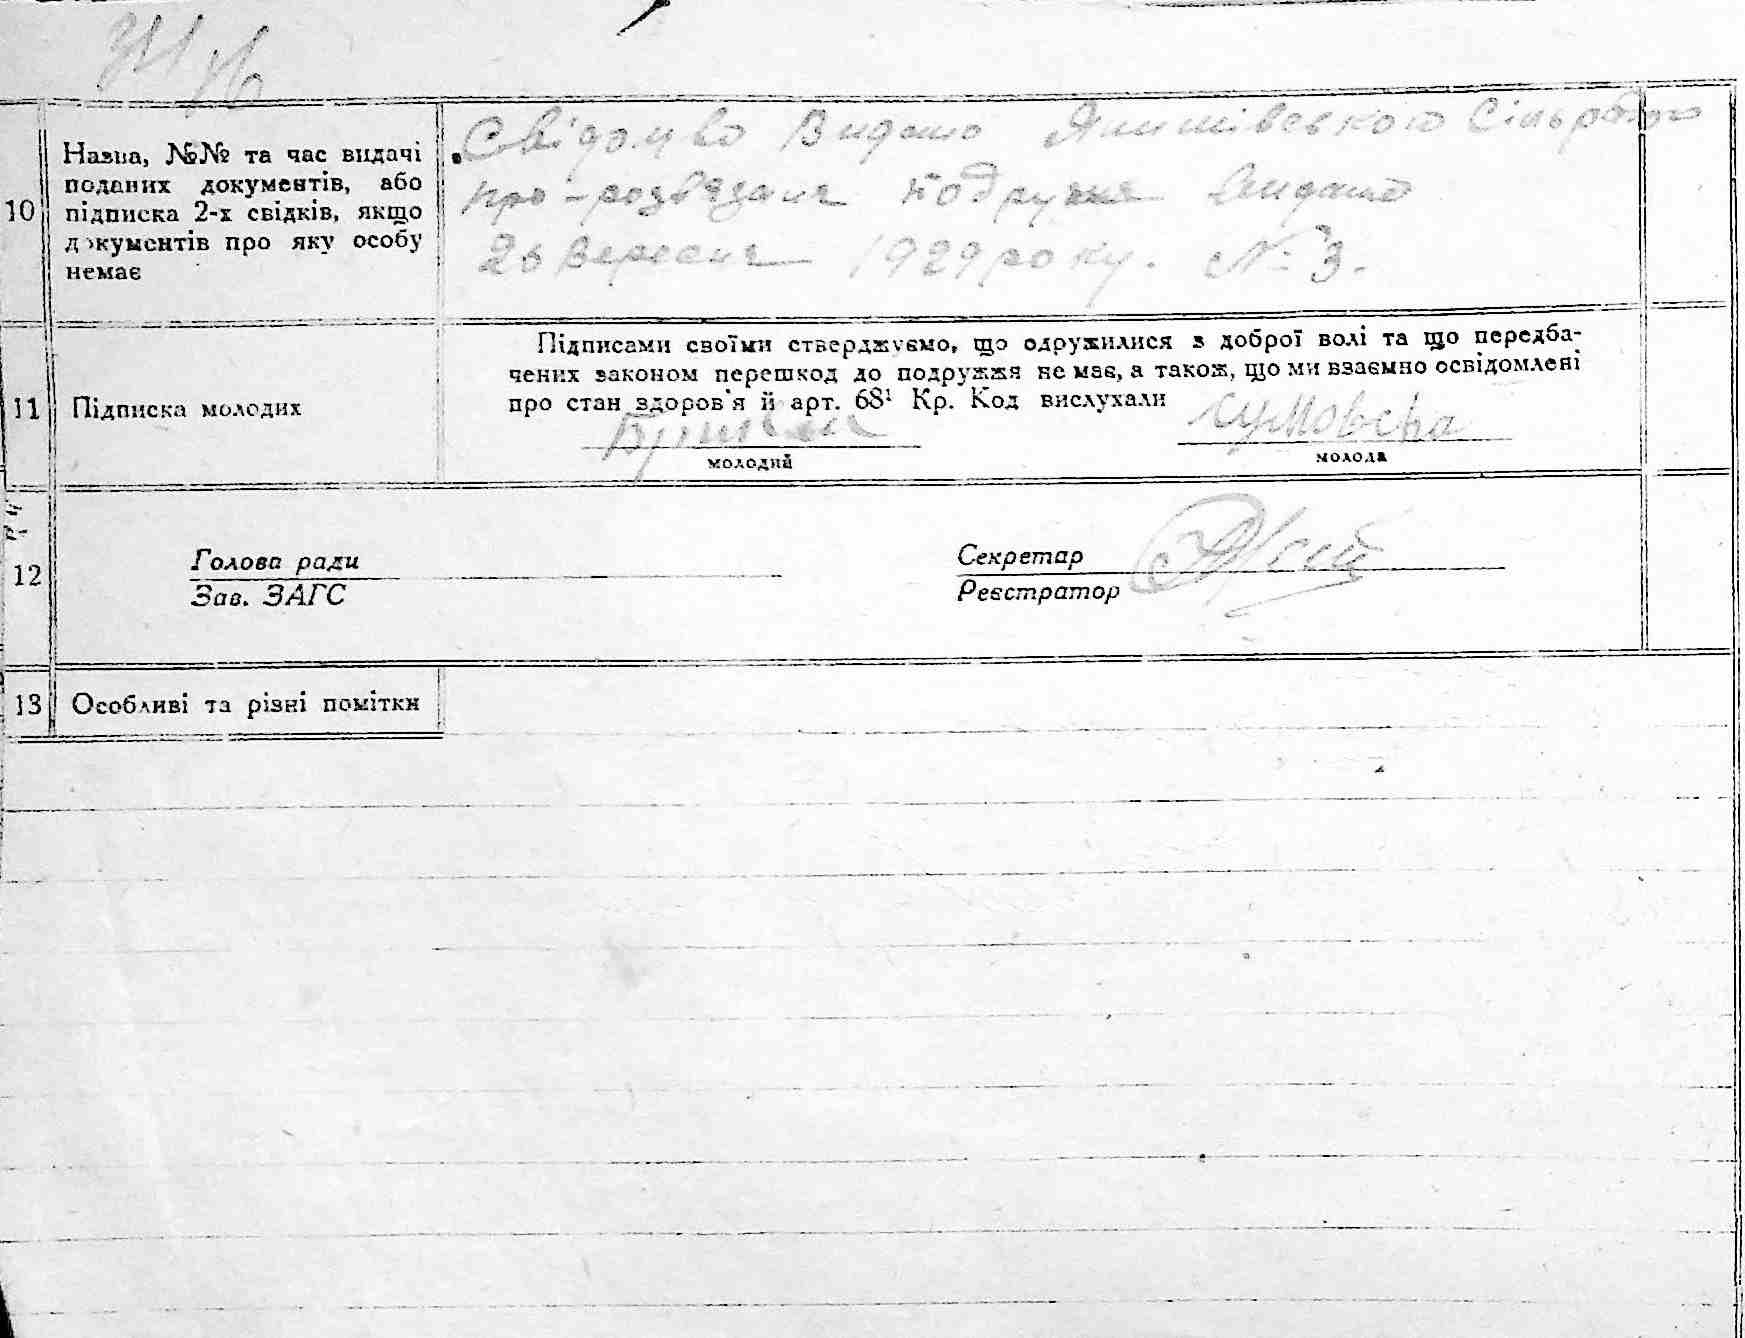 10
Назва, №№ та час видачі
поданих документів, або
підписка 2-х свідків, якщо
документів про яку особу
немає
Свідоцтво Видано Сільрадою
про-розвязаня подружжя видано
26 Вересня 1929 року. № 3.
11
Підписка молодих
Підписами своїми стверджуємо, що одружилися з доброї волі та що передба-
чених законом перешкод до подружжя не має, а також, що ми взаємно освідомлені
про стан здоров'я й арт. 68¹ Кр. Код вислухали
молодий
молода
12
Голова ради
Зав. ЗАГС
Секретар
Реєстратор
13
Особливі та різні помітки